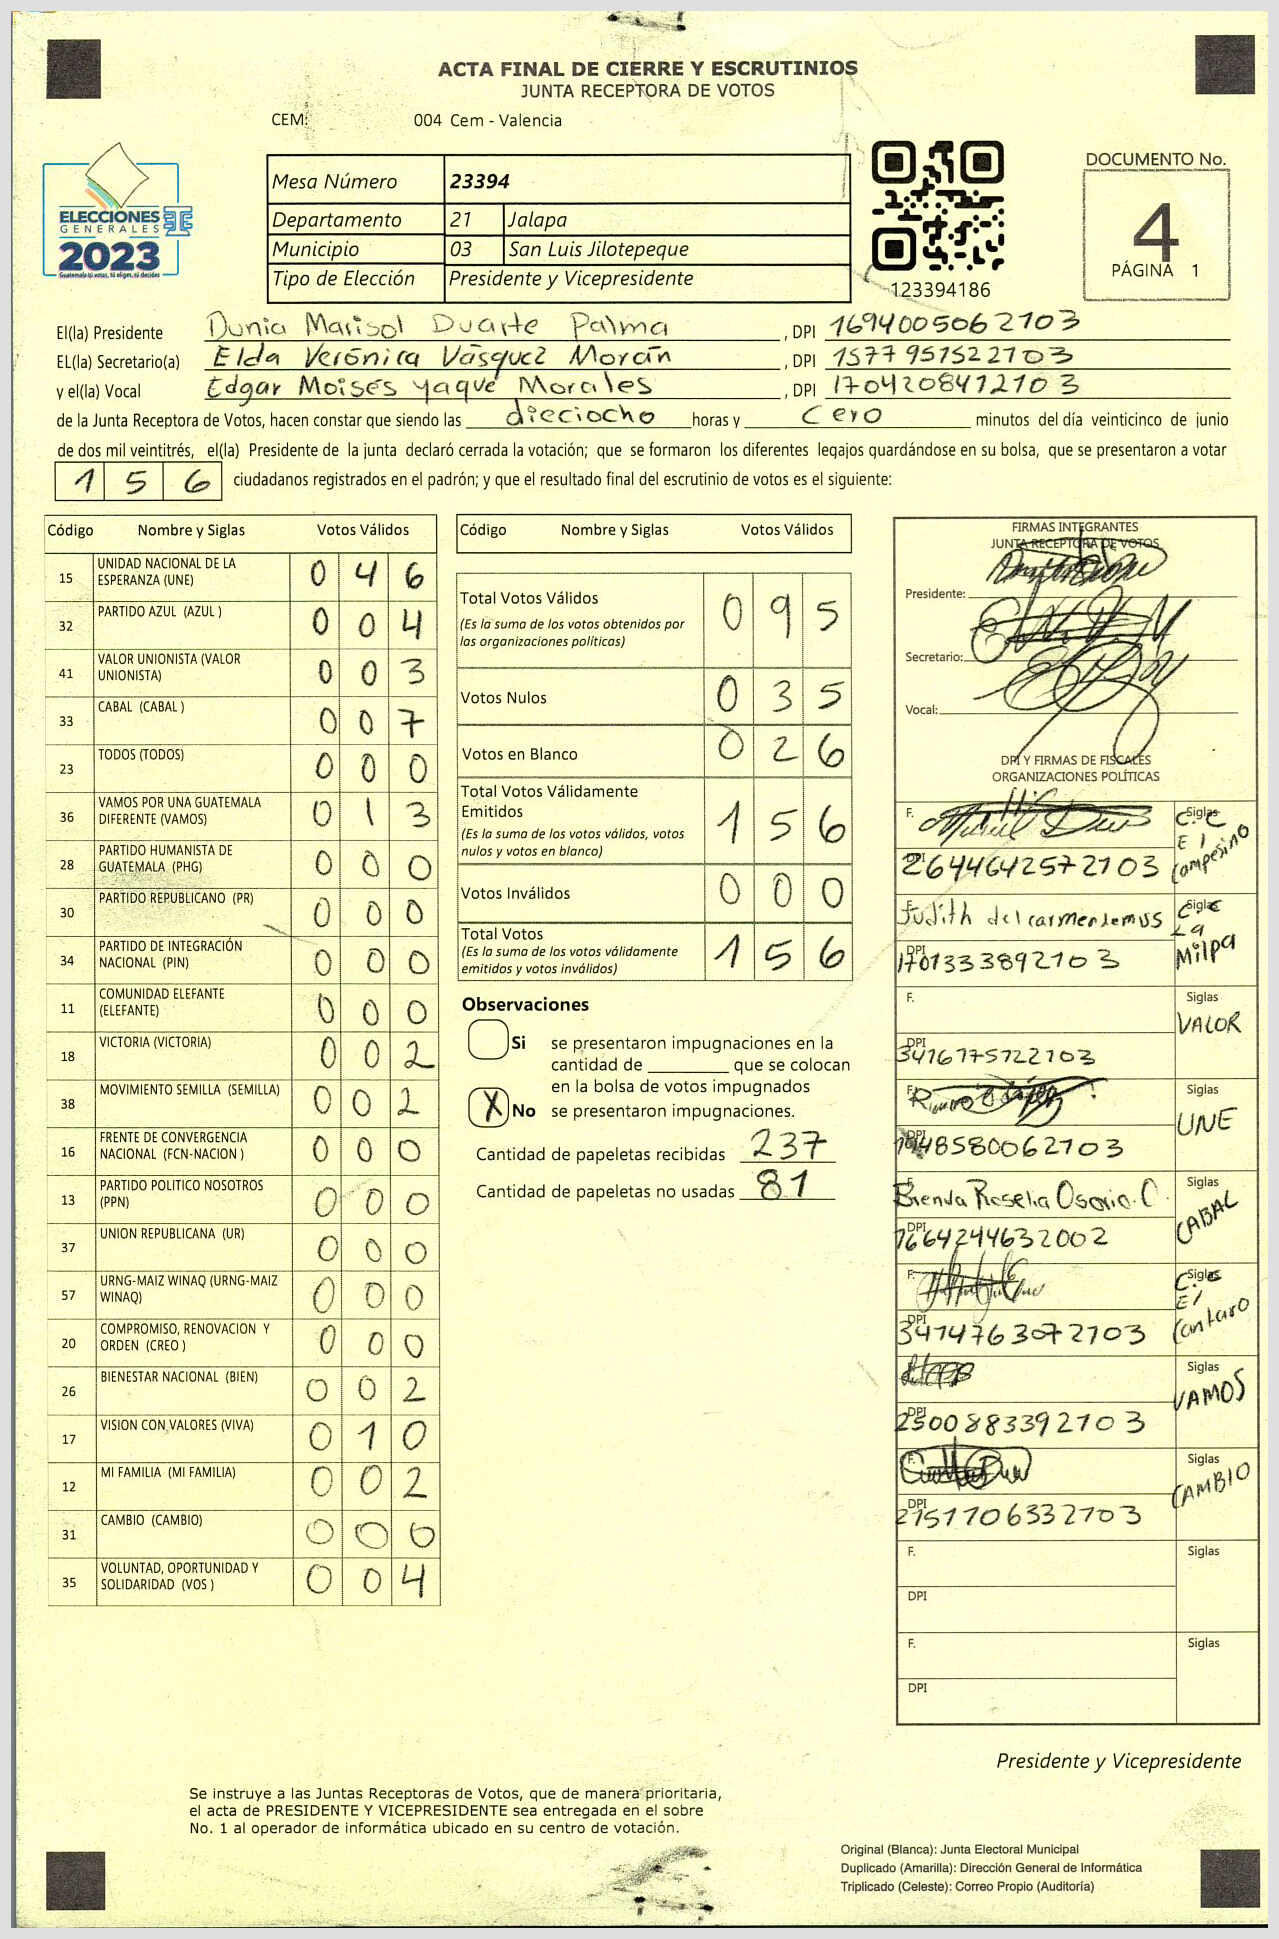 ACTA FINAL DE CIERRE Y ESCRUTINIOS
JUNTA RECEPTORA DE VOTOS
CEM: 004 Cem - Valencia
ELECCIONES
GENERALES
2023
Guatemala tú votas, tú eliges, tú decides
Mesa Número 23394
Departamento 21 Jalapa
Municipio 03 San Luis Jilotepeque
Tipo de Elección Presidente y Vicepresidente
123394186
DOCUMENTO No.
4
PÁGINA 1
El(la) Presidente Dunia Marisol Duarte Palma , DPI 1694005062103
EL(la) Secretario(a) Elda Verónica Vásquez Morán , DPI 1577951522103
y el(la) Vocal Edgar Moisés yaque Morales , DPI 1704208412103
de la Junta Receptora de Votos, hacen constar que siendo las dieciocho horas y cero minutos del día veinticinco de junio
de dos mil veintitrés, el(la) Presidente de la junta declaró cerrada la votación; que se formaron los diferentes legajos guardándose en su bolsa, que se presentaron a votar
1 5 6 ciudadanos registrados en el padrón; y que el resultado final del escrutinio de votos es el siguiente:
Código Nombre y Siglas Votos Válidos
15 UNIDAD NACIONAL DE LA ESPERANZA (UNE) 0 4 6
32 PARTIDO AZUL (AZUL ) 0 0 4
41 VALOR UNIONISTA (VALOR UNIONISTA) 0 0 3
33 CABAL (CABAL ) 0 0 7
23 TODOS (TODOS) 0 0 0
36 VAMOS POR UNA GUATEMALA DIFERENTE (VAMOS) 0 1 3
28 PARTIDO HUMANISTA DE GUATEMALA (PHG) 0 0 0
30 PARTIDO REPUBLICANO (PR) 0 0 0
34 PARTIDO DE INTEGRACIÓN NACIONAL (PIN) 0 0 0
11 COMUNIDAD ELEFANTE (ELEFANTE) 0 0 0
18 VICTORIA (VICTORIA) 0 0 2
38 MOVIMIENTO SEMILLA (SEMILLA) 0 0 2
16 FRENTE DE CONVERGENCIA NACIONAL (FCN-NACION ) 0 0 0
13 PARTIDO POLITICO NOSOTROS (PPN) 0 0 0
37 UNION REPUBLICANA (UR) 0 0 0
57 URNG-MAIZ WINAQ (URNG-MAIZ WINAQ) 0 0 0
20 COMPROMISO, RENOVACION Y ORDEN (CREO ) 0 0 0
26 BIENESTAR NACIONAL (BIEN) 0 0 2
17 VISION CON VALORES (VIVA) 0 1 0
12 MI FAMILIA (MI FAMILIA) 0 0 2
31 CAMBIO (CAMBIO) 0 0 0
35 VOLUNTAD, OPORTUNIDAD Y SOLIDARIDAD (VOS ) 0 0 4
Código Nombre y Siglas Votos Válidos
Total Votos Válidos 0 9 5
(Es la suma de los votos obtenidos por
las organizaciones políticas)
Votos Nulos 0 3 5
Votos en Blanco 0 2 6
Total Votos Válidamente
Emitidos 1 5 6
(Es la suma de los votos válidos, votos
nulos y votos en blanco)
Votos Inválidos 0 0 0
Total Votos 1 5 6
(Es la suma de los votos válidamente
emitidos y votos inválidos)
Observaciones
Si se presentaron impugnaciones en la
cantidad de ________ que se colocan
en la bolsa de votos impugnados
X No se presentaron impugnaciones.
Cantidad de papeletas recibidas 237
Cantidad de papeletas no usadas 81
FIRMAS INTEGRANTES
JUNTA RECEPTORA DE VOTOS
Presidente:
Secretario:
Vocal:
DPI Y FIRMAS DE FISCALES
ORGANIZACIONES POLÍTICAS
F. Siglas C.C El Campesino
DPI 2644642572103
F. Judith del carmen Lemus Siglas C.C La Milpa
DPI 1701333892103
F. Siglas VALOR
DPI 3416775722103
F. Siglas UNE
DPI 48580062103
F. Brenda Roselia Osorio. C. Siglas CABAL
DPI 1664244632002
F. Siglas C.C El Cantaro
DPI 3414763072103
Siglas VAMOS
DPI 2500883392103
F. Siglas CAMBIO
DPI 2151706332103
F. Siglas
DPI
F. Siglas
DPI
Presidente y Vicepresidente
Se instruye a las Juntas Receptoras de Votos, que de manera prioritaria,
el acta de PRESIDENTE Y VICEPRESIDENTE sea entregada en el sobre
No. 1 al operador de informática ubicado en su centro de votación.
Original (Blanca): Junta Electoral Municipal
Duplicado (Amarilla): Dirección General de Informática
Triplicado (Celeste): Correo Propio (Auditoría)